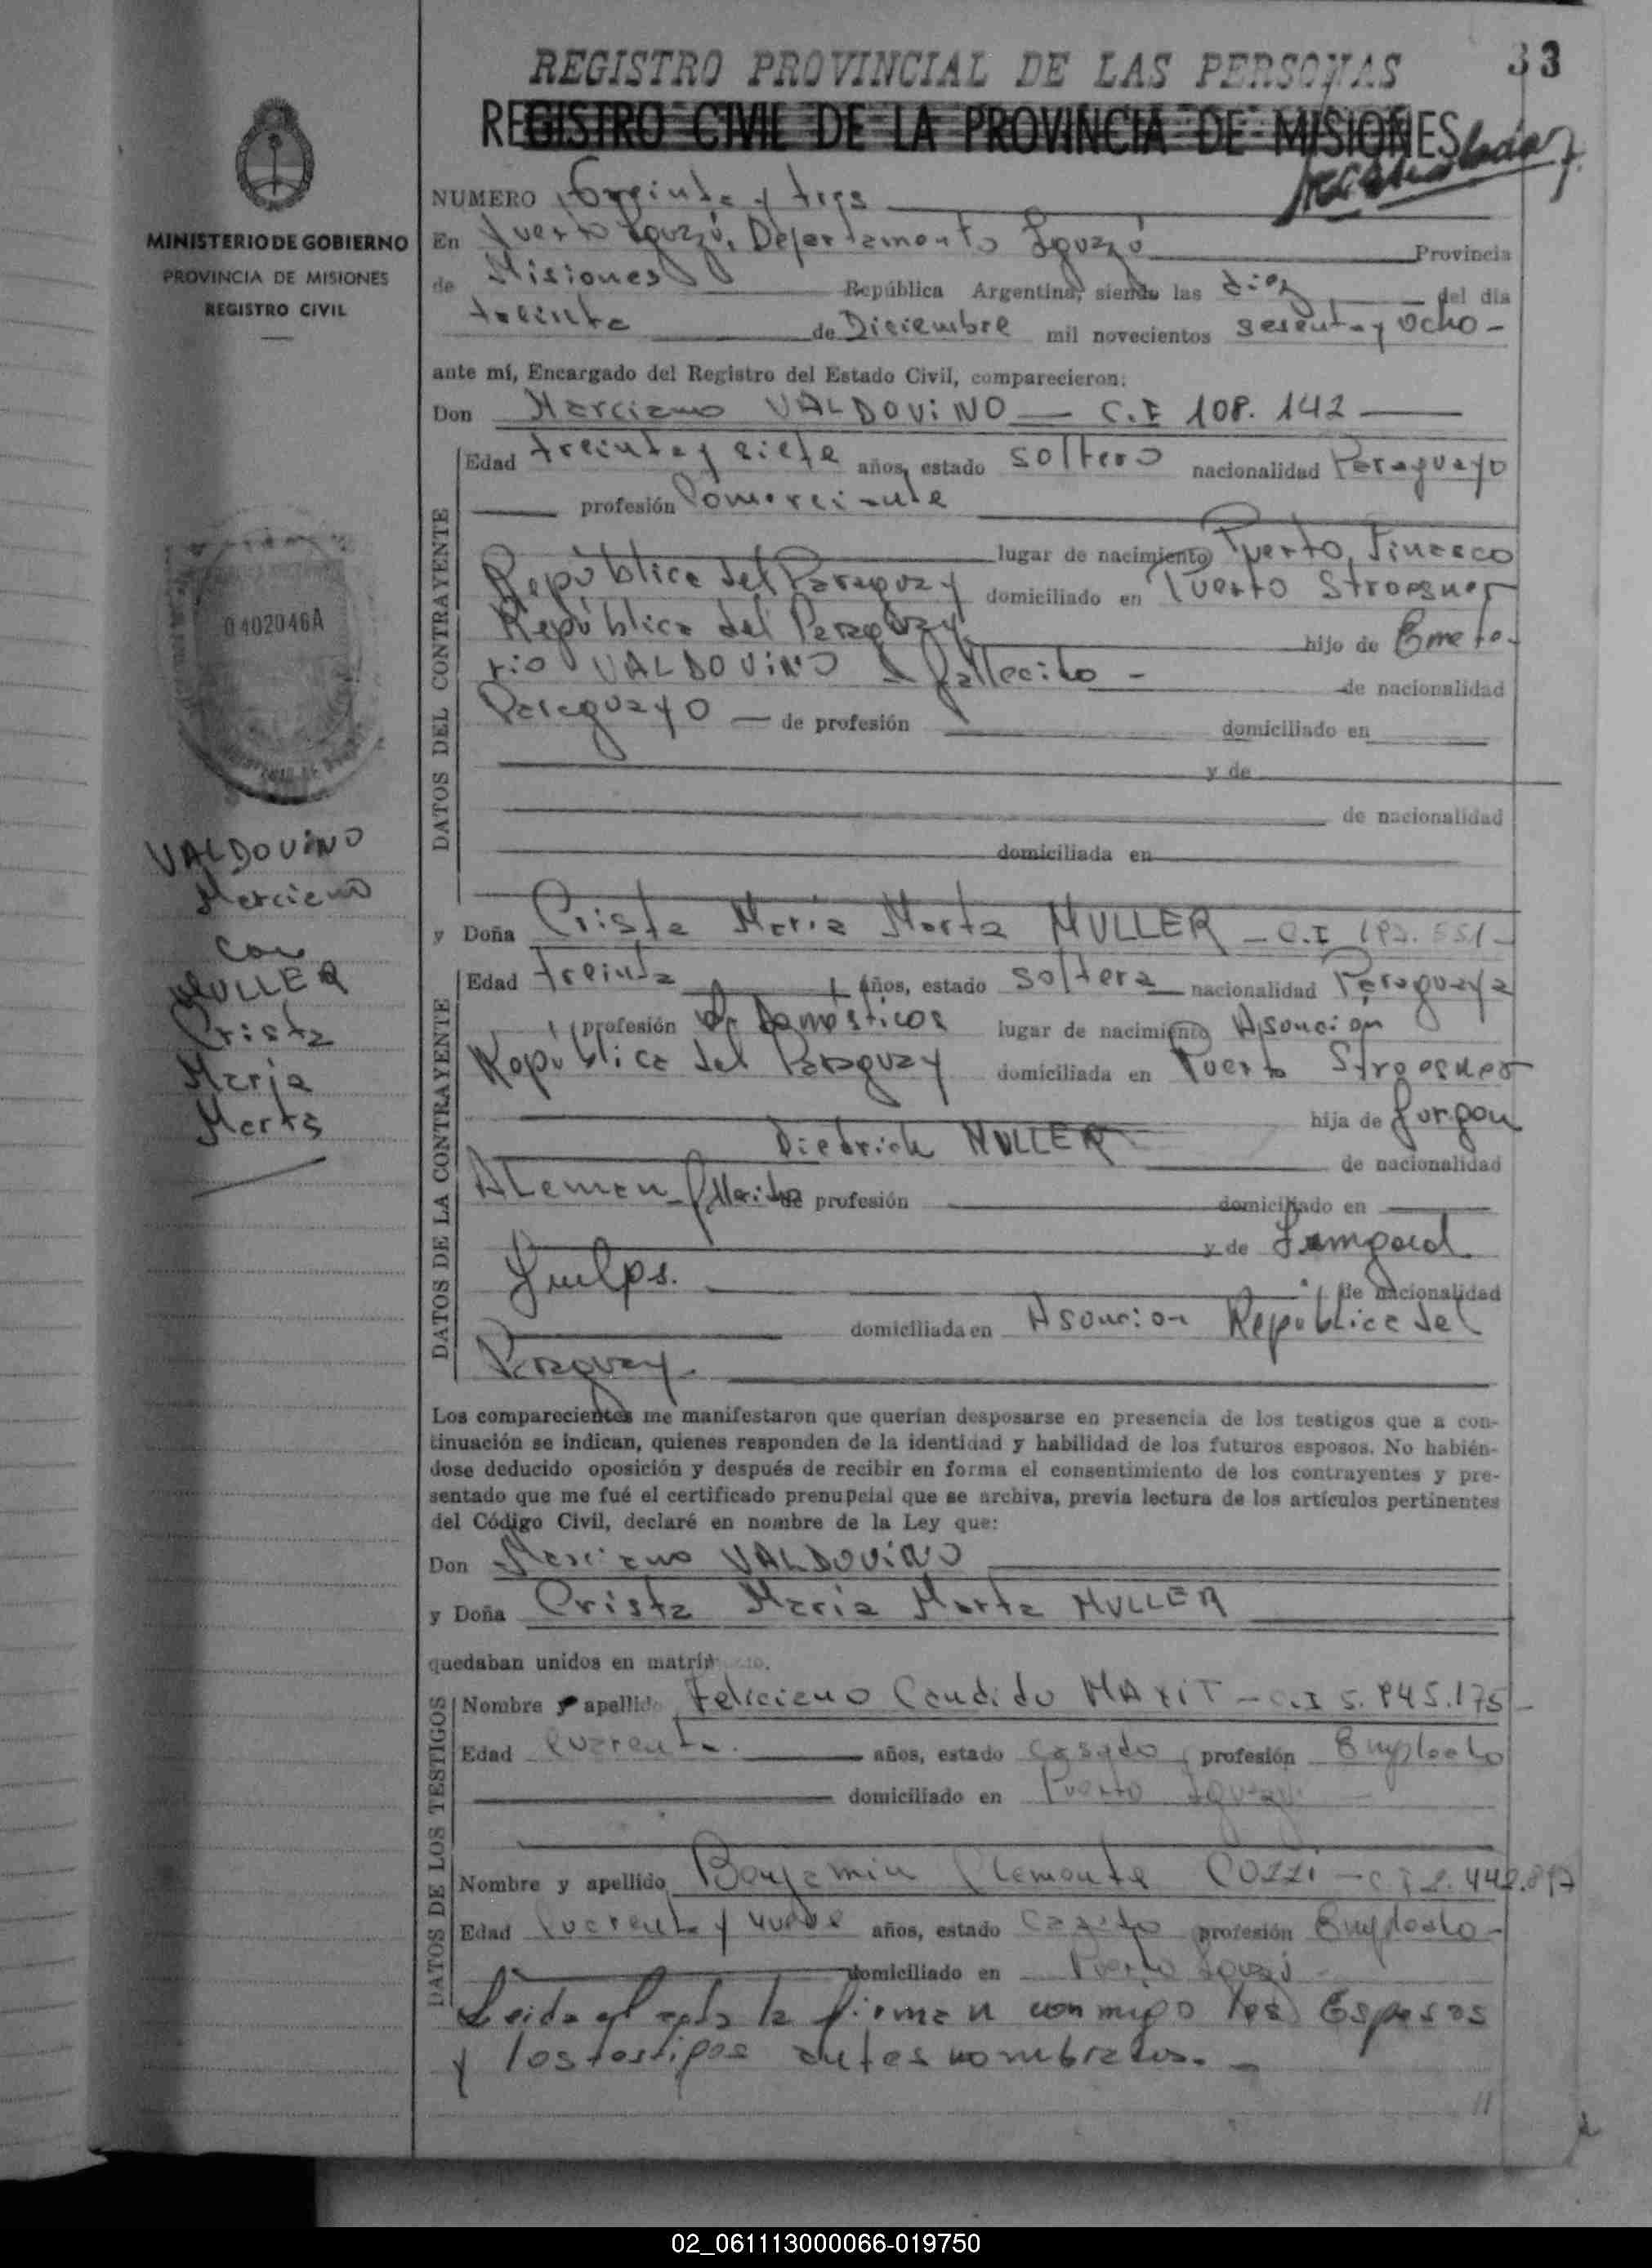 REGISTRO PROVINCIAL DE LAS PERSONAS
33
REGISTRO CIVIL DE LA PROVINCIA DE MISIONES
MINISTERIO DE GOBIERNO
PROVINCIA DE MISIONES
REGISTRO CIVIL
0402046A
VALDOVINO
Marciano
con
MULLER
Crista
Maria
Marta
NUMERO Treinta y tres
En Puerto Iguazú, Departamento Iguazú Provincia
de Misiones República Argentina, siendo las diez del día
treinta de Diciembre mil novecientos sesenta y ocho -
ante mí, Encargado del Registro del Estado Civil, comparecieron:
Don Marciano VALDOVINO — C.I 108.142
DATOS DEL CONTRAYENTE
Edad treinta y siete años, estado soltero nacionalidad Paraguayo
profesión Comerciante
lugar de nacimiento Puerto Pinasco
República del Paraguay domiciliado en Puerto Stroesner
República del Paraguay hijo de Emete-
rio VALDOVINO fallecido -
de nacionalidad
Paraguayo — de profesión domiciliado en
y de
de nacionalidad
domiciliada en
y Doña Crista Maria Marta MULLER - C.I
DATOS DE LA CONTRAYENTE
Edad treinta años, estado soltera nacionalidad Paraguaya
profesión Q. Domésticos lugar de nacimiento Asunción
República del Paraguay domiciliada en Puerto Stroesner
hija de Jurgen
Diedrich MULLER
de nacionalidad
Aleman - fallecido de profesión domiciliado en
y de
de nacionalidad
domiciliada en Asuncion República del
Paraguay.
Los comparecientes me manifestaron que querían desposarse en presencia de los testigos que a con-
tinuación se indican, quienes responden de la identidad y habilidad de los futuros esposos. No habién-
dose deducido oposición y después de recibir en forma el consentimiento de los contrayentes y pre-
sentado que me fué el certificado prenupcial que se archiva, previa lectura de los artículos pertinentes
del Código Civil, declaré en nombre de la Ley que:
Don Marciano VALDOVINO
y Doña Crista Maria Marta MULLER
quedaban unidos en matrimonio.
DATOS DE LOS TESTIGOS
Nombre y apellido Feliciano Candido MAXIT - C.I 5.945.175 -
Edad cuarenta. años, estado casado profesión Empleado
domiciliado en Puerto Iguazú
DATOS DE LOS TESTIGOS
Nombre y apellido Benjamin Clemente COZZI - C.I 2.442.897
Edad cuarenta y nueve años, estado casado profesión Empleado -
domiciliado en Puerto Iguazú
Leida el acta la firman conmigo los Esposos
y los testigos antes nombrados. -
02_061113000066-019750